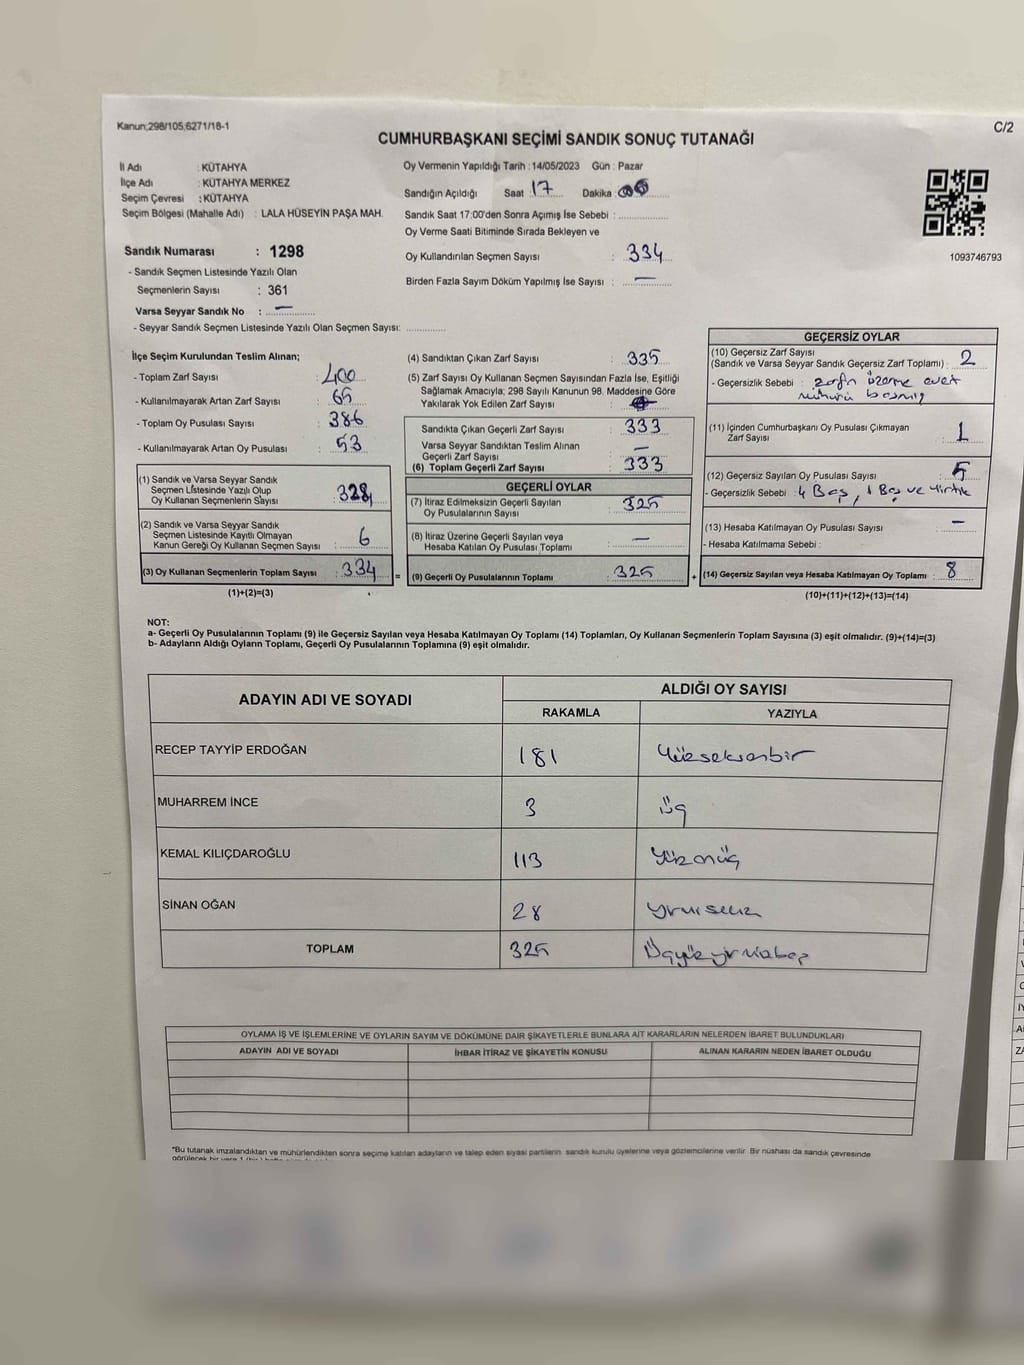 Kanun;298/105;6271/18-1
C/2
CUMHURBAŞKANI SEÇİMİ SANDIK SONUÇ TUTANAĞI
İl Adı : KÜTAHYA
İlçe Adı : KÜTAHYA MERKEZ
Seçim Çevresi : KÜTAHYA
Seçim Bölgesi (Mahalle Adı) : LALA HÜSEYİN PAŞA MAH.
Sandık Numarası : 1298
- Sandık Seçmen Listesinde Yazılı Olan
Seçmenlerin Sayısı : 361
Varsa Seyyar Sandık No : —
- Seyyar Sandık Seçmen Listesinde Yazılı Olan Seçmen Sayısı: ............
Oy Vermenin Yapıldığı Tarih : 14/05/2023 Gün : Pazar
Sandığın Açıldığı Saat : 17 Dakika :
Sandık Saat 17:00'den Sonra Açımış İse Sebebi : ............
Oy Verme Saati Bitiminde Sırada Bekleyen ve
Oy Kullandırılan Seçmen Sayısı : 334
Birden Fazla Sayım Döküm Yapılmış İse Sayısı : —
1093746793
İlçe Seçim Kurulundan Teslim Alınan;
- Toplam Zarf Sayısı : 400
- Kullanılmayarak Artan Zarf Sayısı : 65
- Toplam Oy Pusulası Sayısı : 386
- Kullanılmayarak Artan Oy Pusulası : 53
(1) Sandık ve Varsa Seyyar Sandık
Seçmen Listesinde Yazılı Olup
Oy Kullanan Seçmenlerin Sayısı : 328
(2) Sandık ve Varsa Seyyar Sandık
Seçmen Listesinde Kayıtlı Olmayan
Kanun Gereği Oy Kullanan Seçmen Sayısı : 6
(3) Oy Kullanan Seçmenlerin Toplam Sayısı : 334
(1)+(2)=(3)
=
(4) Sandıktan Çıkan Zarf Sayısı : 335
(5) Zarf Sayısı Oy Kullanan Seçmen Sayısından Fazla İse, Eşitliği
Sağlamak Amacıyla; 298 Sayılı Kanunun 98. Maddesine Göre
Yakılarak Yok Edilen Zarf Sayısı :
Sandıkta Çıkan Geçerli Zarf Sayısı : 333
Varsa Seyyar Sandıktan Teslim Alınan
Geçerli Zarf Sayısı : —
(6) Toplam Geçerli Zarf Sayısı : 333
GEÇERLİ OYLAR
(7) İtiraz Edilmeksizin Geçerli Sayılan
Oy Pusulalarının Sayısı : 325
(8) İtiraz Üzerine Geçerli Sayılan veya
Hesaba Katılan Oy Pusulası Toplamı : —
(9) Geçerli Oy Pusulalarının Toplamı : 325
+
GEÇERSİZ OYLAR
(10) Geçersiz Zarf Sayısı
(Sandık ve Varsa Seyyar Sandık Geçersiz Zarf Toplamı) : 2
- Geçersizlik Sebebi : zarfın üzerine evet
mührü basmış
(11) İçinden Cumhurbaşkanı Oy Pusulası Çıkmayan
Zarf Sayısı : 1
(12) Geçersiz Sayılan Oy Pusulası Sayısı : 5
- Geçersizlik Sebebi : 4 Boş, 1 Boş ve Yırtık
(13) Hesaba Katılmayan Oy Pusulası Sayısı : —
- Hesaba Katılmama Sebebi :
(14) Geçersiz Sayılan veya Hesaba Katılmayan Oy Toplamı : 8
(10)+(11)+(12)+(13)=(14)
NOT:
a- Geçerli Oy Pusulalarının Toplamı (9) ile Geçersiz Sayılan veya Hesaba Katılmayan Oy Toplamı (14) Toplamları, Oy Kullanan Seçmenlerin Toplam Sayısına (3) eşit olmalıdır. (9)+(14)=(3)
b- Adayların Aldığı Oyların Toplamı, Geçerli Oy Pusulalarının Toplamına (9) eşit olmalıdır.
ADAYIN ADI VE SOYADI
ALDIĞI OY SAYISI
RAKAMLA YAZIYLA
RECEP TAYYİP ERDOĞAN 181 Yüzseksenbir
MUHARREM İNCE 3 Üç
KEMAL KILIÇDAROĞLU 113 Yüzonüç
SİNAN OĞAN 28 Yirmisekiz
TOPLAM 325 Üçyüzyirmibeş
OYLAMA İŞ VE İŞLEMLERİNE VE OYLARIN SAYIM VE DÖKÜMÜNE DAİR ŞİKAYETLERLE BUNLARA AİT KARARLARIN NELERDEN İBARET BULUNDUKLARI
ADAYIN ADI VE SOYADI İHBAR İTİRAZ VE ŞİKAYETİN KONUSU ALINAN KARARIN NEDEN İBARET OLDUĞU
*Bu tutanak imzalandıktan ve mühürlendikten sonra seçime katılan adayların ve talep eden siyasi partilerin sandık kurulu üyelerine veya gözlemcilerine verilir. Bir nüshası da sandık çevresinde